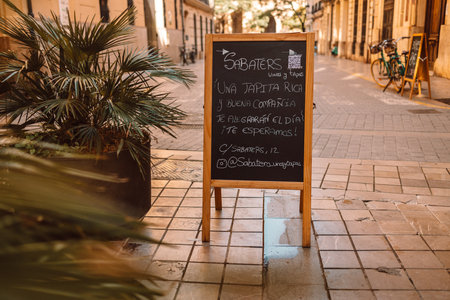 SABATERS
vinos y tapas
¡UNA TAPITA RICA
Y BUENA COMPAÑÍA
TE ALEGRARÁN EL DÍA!
¡TE ESPERAMOS!
C/ SABATERS, 12
@Sabaters.vinosytapas